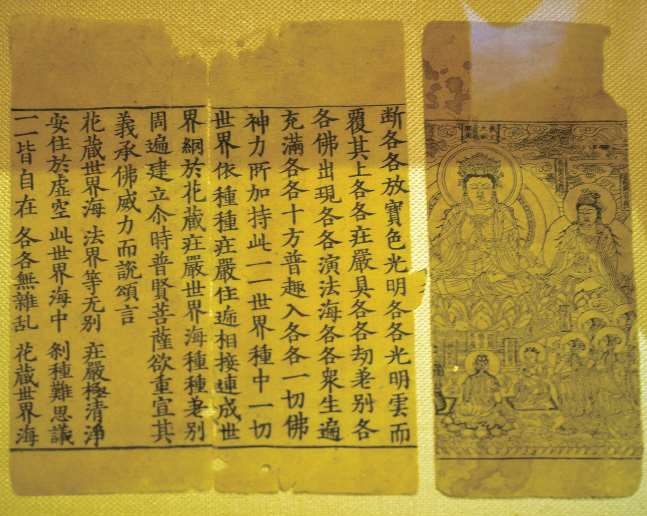 断各各放寶色光明各各光明雲而
覆其上各各庄嚴具各各劫差別各
各佛出現各各演法海各各衆生遍
充滿各各十方普趣入各各一切佛
神力所加持此一一世界種中一切
世界依種種庄嚴住遞相接連成世
界網於花藏庄嚴世界海種種差別
周遍建立尒時普賢菩薩欲重宣其
義承佛威力而說頌言
花藏世界海 法界等无別 庄嚴極清淨
安住於虛空 此世界海中 刹種難思議
一一皆自在 各各無雜乱 花藏世界海